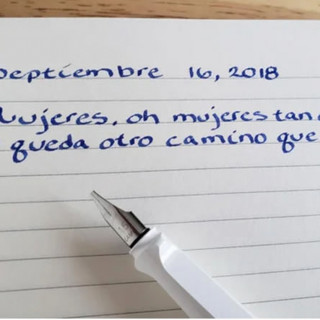 Septiembre 16, 2018
Mujeres, oh mujeres tan
queda otro camino que